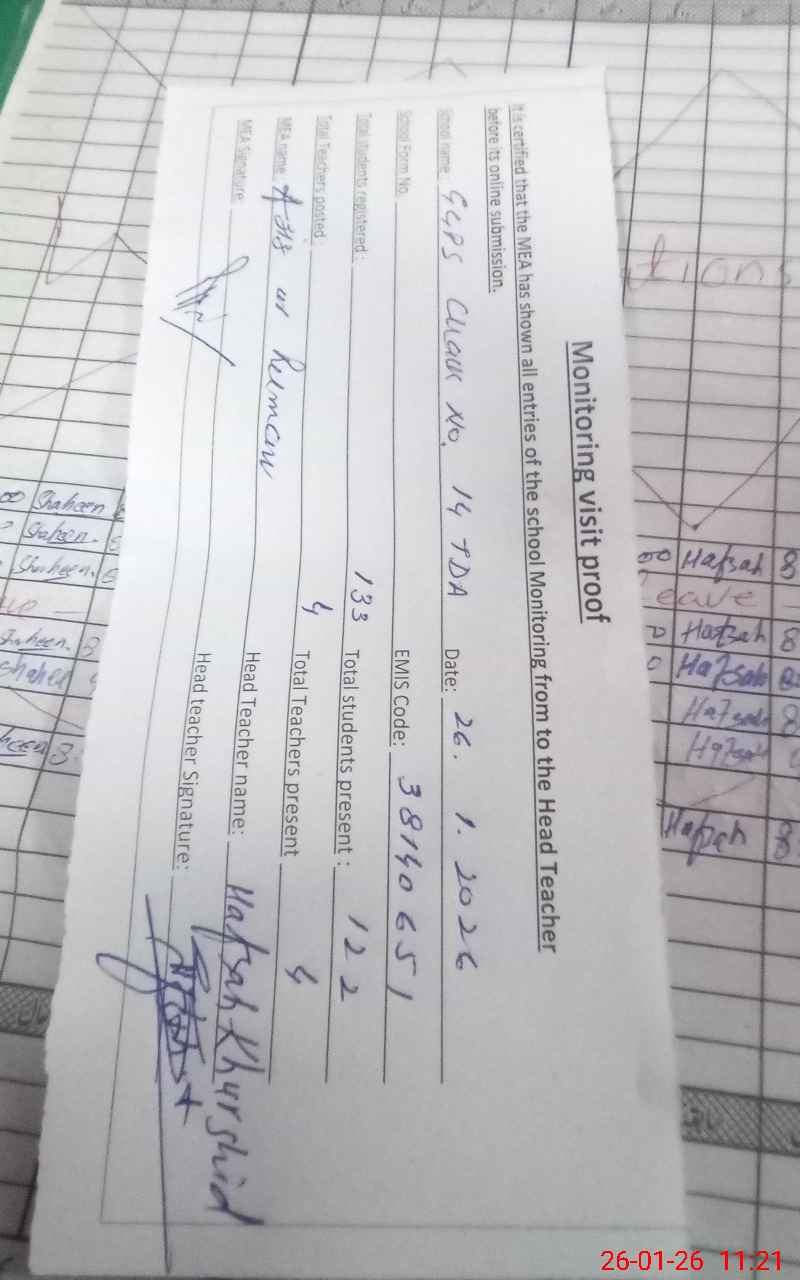 Monitoring visit proof
It is certified that the MEA has shown all entries of the school Monitoring from to the Head Teacher
before its online submission.
School name: GGPS Chak No. 14 TDA Date: 26. 1. 2026
School Form No. EMIS Code: 38140651
Total students registered: 133 Total students present: 122
Total Teachers posted: 4 Total Teachers present 4
MEA name: ur Rehman Head Teacher name: Hafsah Khurshid
MEA Signature: Head teacher Signature:
tions
Shaheen
Shaheen.
Shaheen.
Shaheen.
Shaheen
Hafsah 8
Leave
Hafsah 8
Hafsah
Hafsah 8
Hafsah
Hafsah 8
26-01-26 11:21